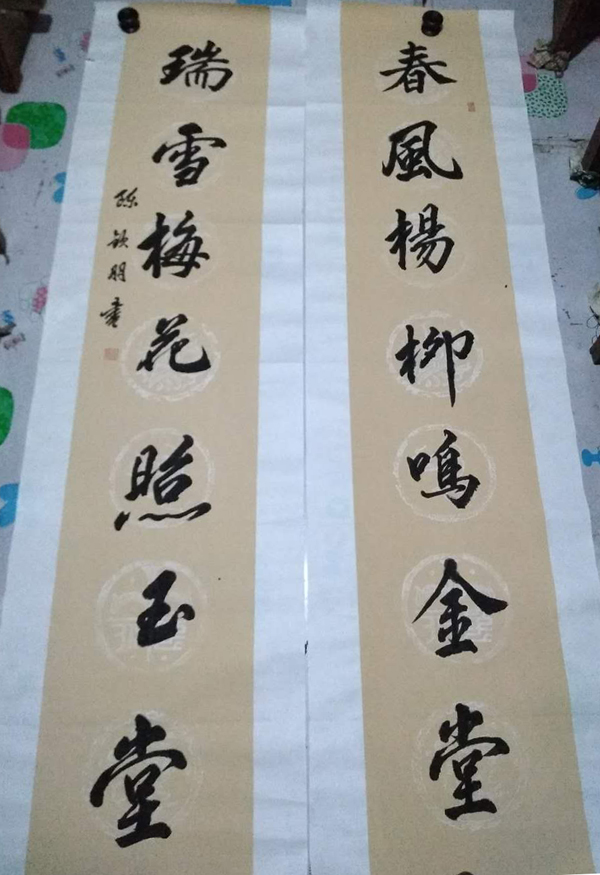 春風楊柳鳴金堂
瑞雪梅花照玉堂
陈钦明書